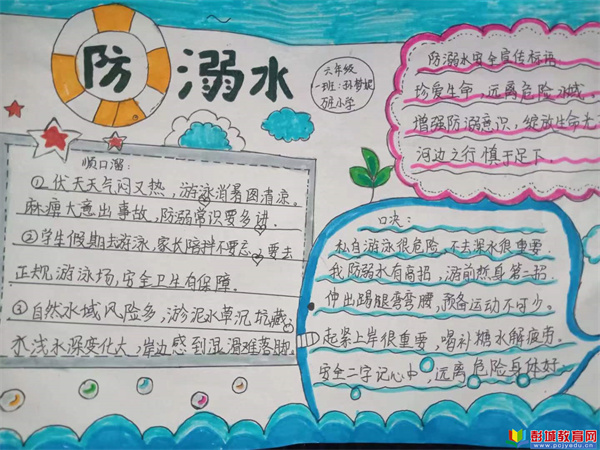 防溺水
六年级
一班:孙梦妮
砀小学
顺口溜:
①伏天天气闷又热,游泳消暑图清凉。
麻痹大意出事故,防溺常识要多讲.
②学生假期去游泳,家长陪拌不要忘,要去
正规游泳场,安全卫生有保障.
③自然水域风险多,淤泥水草沉坑藏,
水浅水深变化大,岸边感到湿滑难落脚.
防溺水安全宣传标语
珍爱生命,远离危险水域
增强防溺意识,绽放生命无
河边之行慎于足下.
口决:
私自游泳很危险,不去深水很重要.
我防溺水有高招,游前热身第一招
伸出踢腿弯弯腰,预备运动不可少。
起紧上岸很重要,喝补糖水解疲劳.
安全二字记心中,远离危险身体好.
彭城教育网
www.pcjyedu.cn